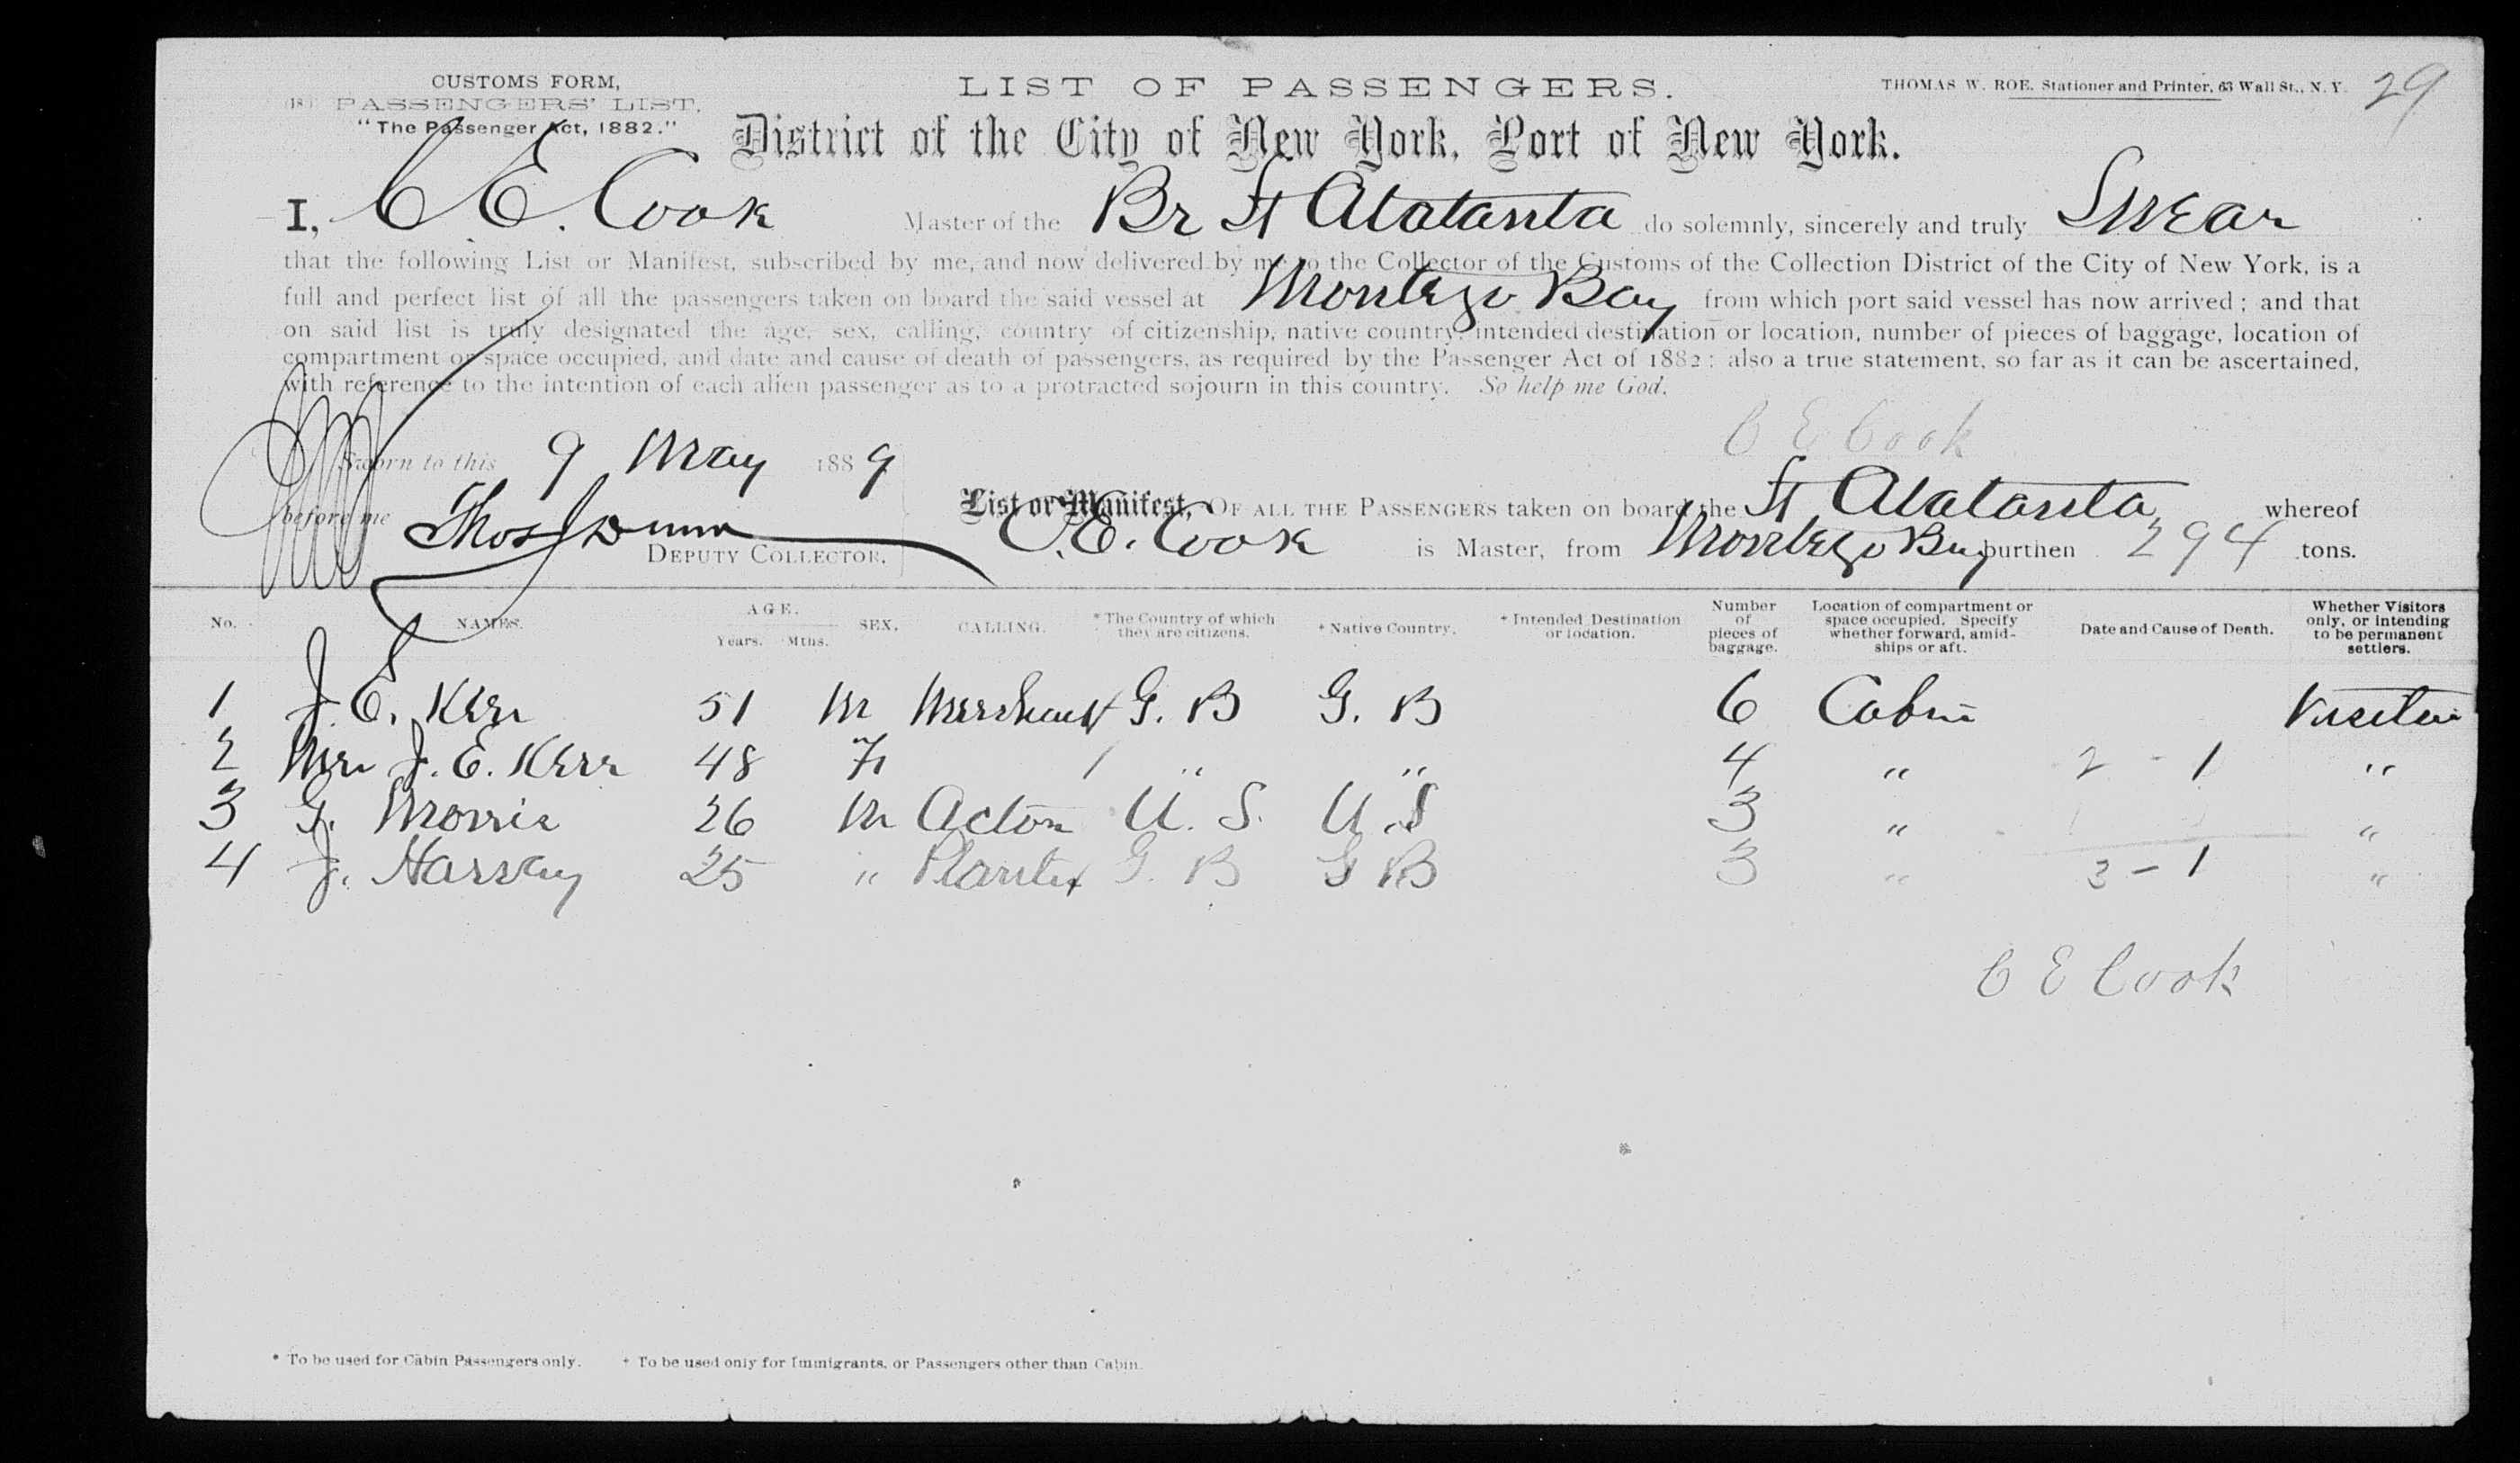 CUSTOMS FORM,
PASSENGERS' LIST.
"The Passenger Act, 1882."
LIST OF PASSENGERS.
THOMAS W. ROE, Stationer and Printer, 63 Wall St., N. Y.
29
District of the City of New York, Port of New York.
I, C E. Cook Master of the Br St Alatanta do solemnly, sincerely and truly Swear
that the following List or Manifest, subscribed by me, and now delivered by me to the Collector of the Customs of the Collection District of the City of New York, is a
full and perfect list of all the passengers taken on board the said vessel at Montego Bay from which port said vessel has now arrived; and that
on said list is truly designated the age, sex, calling, country of citizenship, native country, intended destination or location, number of pieces of baggage, location of
compartment or space occupied, and date and cause of death of passengers, as required by the Passenger Act of 1882; also a true statement, so far as it can be ascertained,
with reference to the intention of each alien passenger as to a protracted sojourn in this country. So help me God.
C E Cook
Sworn to this 9 May 1889
before me Thos Dunn
DEPUTY COLLECTOR.
List or Manifest, OF ALL THE PASSENGERS taken on board the St Alatanta whereof
C. E. Cook is Master, from Montego Bay burthen 294 tons.
No. NAMES. AGE. Years. Mths. SEX. CALLING. * The Country of which they are citizens. + Native Country. + Intended Destination or location. Number of pieces of baggage. Location of compartment or space occupied. Specify whether forward, amid-ships or aft. Date and Cause of Death. Whether Visitors only, or intending to be permanent settlers.
1 J. E. Kerr 51 M Merchant G. B G. B 6 Cabin Visitor
2 Mrs J. E. Kerr 48 F / " " 4 " 2 - 1 "
3 G. Morris 26 M Actor U. S. U. S 3 " "
4 J. Harvey 25 " Planter G. B G B 3 " 3 - 1 "
C E Cook
* To be used for Cabin Passengers only. + To be used only for Immigrants, or Passengers other than Cabin.